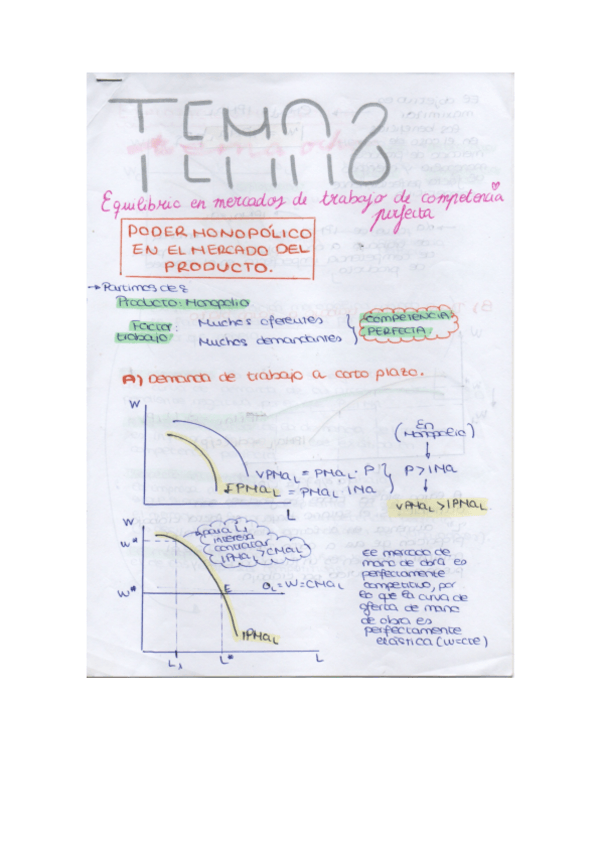 TEMA 8
Equilibrio en mercados de trabajo de competencia
perfecta
PODER MONOPÓLICO
EN EL MERCADO DEL
PRODUCTO.
→ Partimos de:
Producto: Monopolio
Factor trabajo:
Muchos oferentes
Muchos demandantes
COMPETENCIA
PERFECTA
A) Demanda de trabajo a corto plazo.
W
VPMaL = PMaL · P
IPMaL = PMaL · IMa
L
En
(Monopolio)
P > IMa
VPMaL > IPMaL
W
W'
W*
interesa
contratar
IPMaL > CMaL
E
OL = W = CMaL
IPMaL
L1
L*
L
El mercado de
mano de obra es
perfectamente
competitivo, por
lo que la curva de
oferta de mano
de obra es
perfectamente
elástica (W=cte)